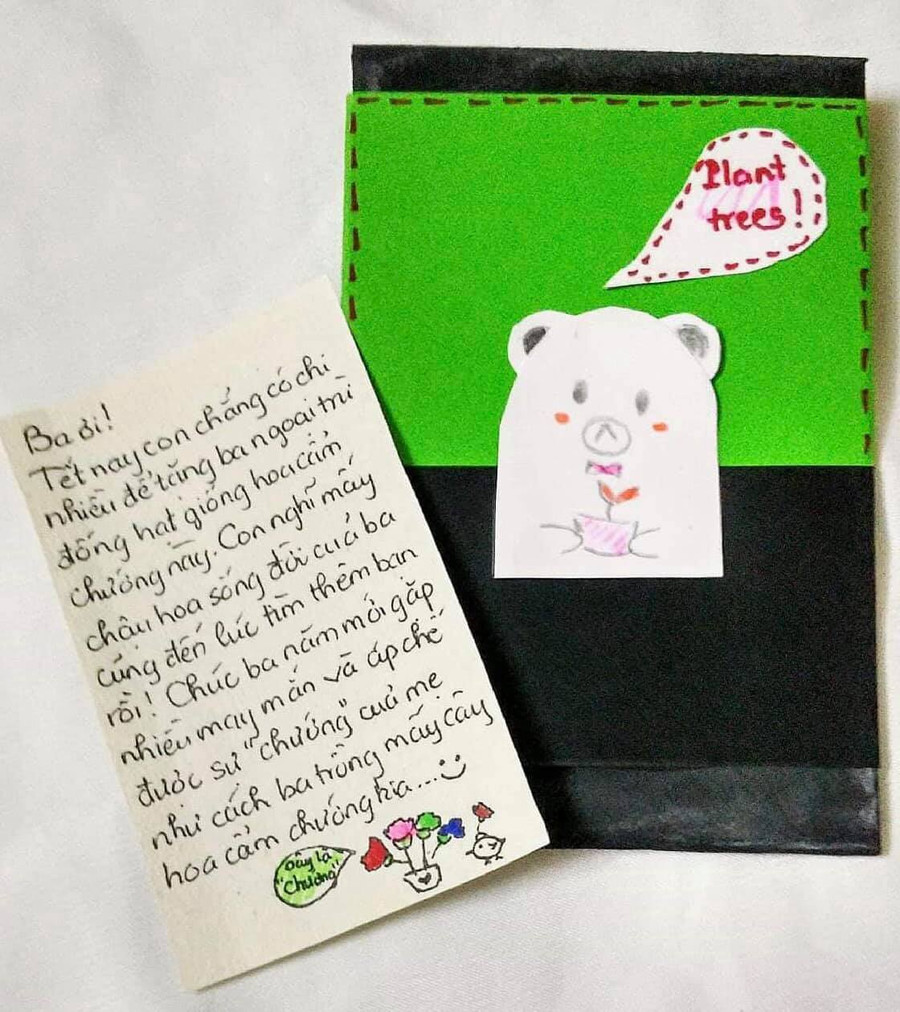 Ba ơi!
Tết nay con chẳng có chi
nhiều để tặng ba ngoại trừ
đống hạt giống hoa cẩm
chướng này. Con nghĩ mấy
chậu hoa sống đời cuả ba
cũng đến lúc tìm thêm bạn
rồi! Chúc ba năm mới gặp
nhiều may mắn và áp chế
được sự "chướng" cuả mẹ
như cách ba trồng mấy cây
hoa cẩm chướng kia...
Đây là
"Chướng"
Plant
trees!